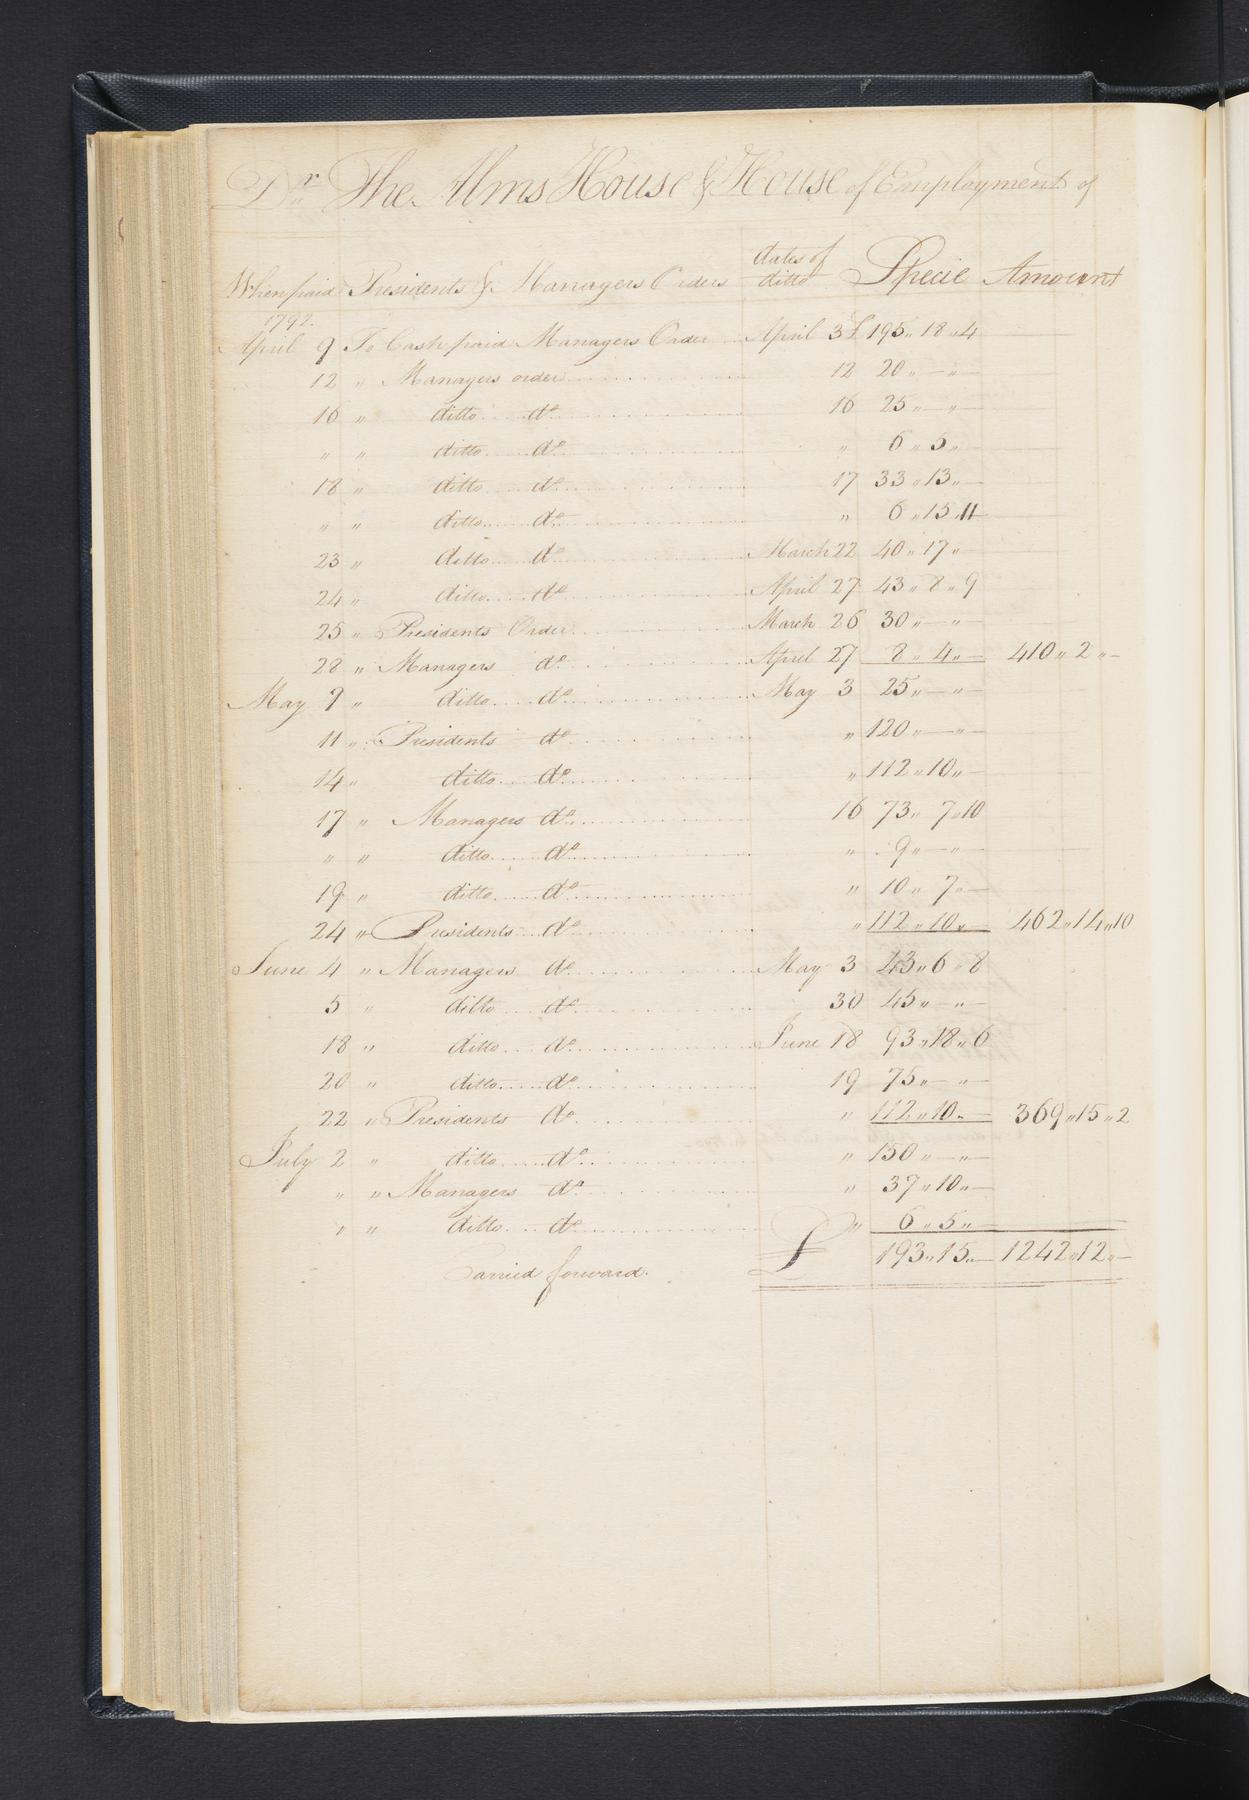 Dr The Alms House & House of Employment of
When paid Presidents & Managers Orders dates of ditto Specie Amount
1792.
April 9 To Cash paid Managers Order April 3 £ 195 " 18 " 4
12 " Managers order 12 20 " — " —
16 " ditto do 16 25 " — " —
" " ditto do " 6 " 5 "
18 " ditto do 17 33 " 13 " —
" " ditto do " 6 " 15 " 11
23 " ditto do March 22 40 " 17 " —
24 " ditto do April 27 43 " 8 " 9
25 " Presidents Order March 26 30 " — " —
28 " Managers do April 27 8 " 4 " — 410 " 2 " —
May 9 " ditto do May 3 25 " — " —
11 " Presidents do " 120 " — " —
14 " ditto do " 112 " 10 " —
17 " Managers do 16 73 " 7 " 10
" " ditto do " 9 " — " —
19 " ditto do " 10 " 7 " —
24 " Presidents do " 112 " 10 " — 462 " 14 " 10
June 4 " Managers do May 3 43 " 6 " 8
5 " ditto do 30 45 " — " —
18 " ditto do June 18 93 " 18 " 6
20 " ditto do 19 75 " — " —
22 " Presidents do " 112 " 10 " — 369 " 15 " 2
July 2 " ditto do " 150 " — " —
" " Managers do " 37 " 10 " —
" " ditto do " 6 " 5 " —
Carried forward. £ 193 " 15 " — 1242 " 12 " —